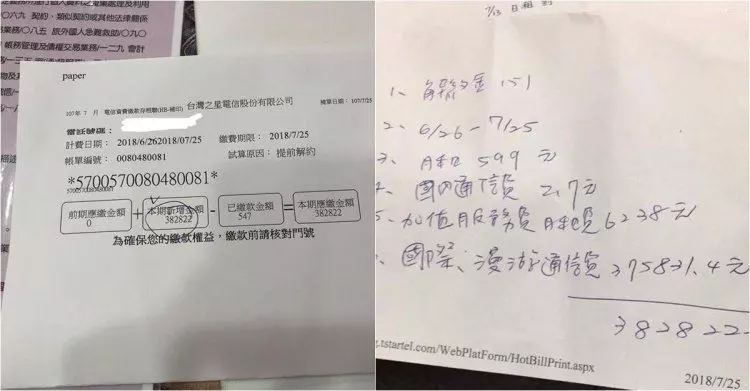 〇六九 契約、類似契約或其他法律關係
paper
107年 7 月 電信資費繳款存根聯(HB-補印) 台灣之星電信股份有限公司 補單日期：107/7/25
電話號碼：
計費日期：2018/6/262018/07/25 繳費期限：2018/7/25
帳單編號：0080480081 試算原因：提前解約
*5700570080480081*
5700570080480081
前期應繳金額 0 + 本期新增金額 382822 - 已繳款金額 547 = 本期應繳金額 382822
為確保您的繳款權益，繳款前請核對門號
7/13 日租
1、解約金 151
2、6/26-7/25
3、月租 599 元
國內通信費 2.7元
5、加值服務費月租費 6238元
國際、漫游通信費 375831.4元
382822
g.tstartel.com/WebPlatForm/HotBillPrint.aspx
2018/7/25